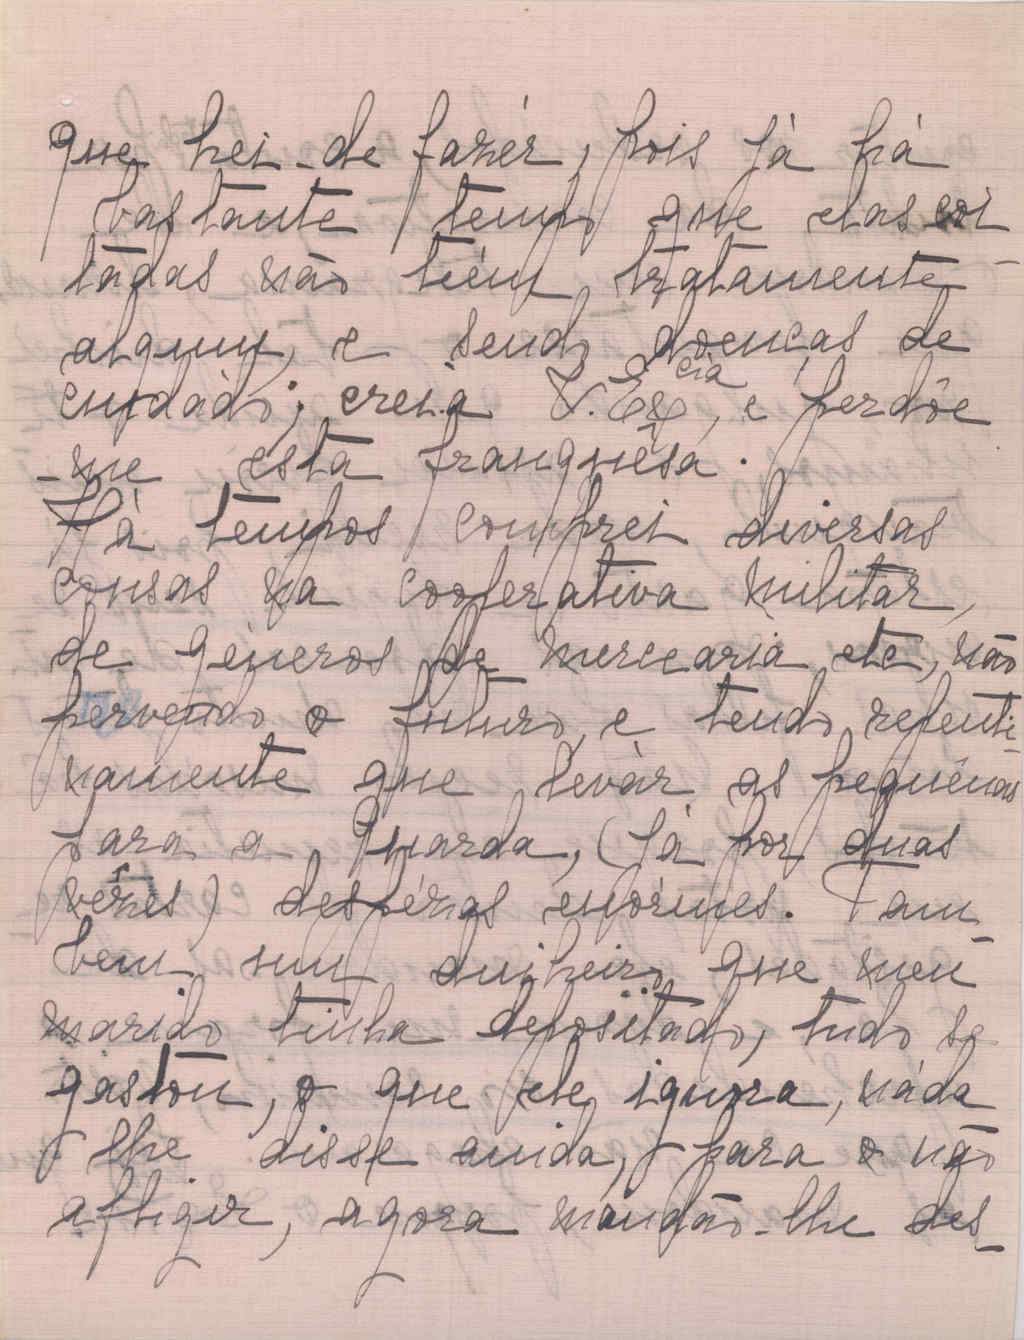 que hei-de fazêr, pois já há
bastante tempo que elas coi
tádas não téem tratamente
algum, e sendo doenças de
cuidádo; creia V. Ex.cia, e perdôe
-me esta franquêsa.
Há tempos comprei diversas
cousas na cooperativa militar,
de géneros de mercearia etc, não
pervendo o futuro, e tendo, repenti-
namente que levár as pequênas
para a Guarda, (já por duas
vêzes) despézas enórmes. Tam-
bem num dinheiro que meu
marido tinha depositádo, tudo se
gastou, o que ele ignora, náda
lhe disse ainda, para o não
afligir, agora mandão-lhe des-